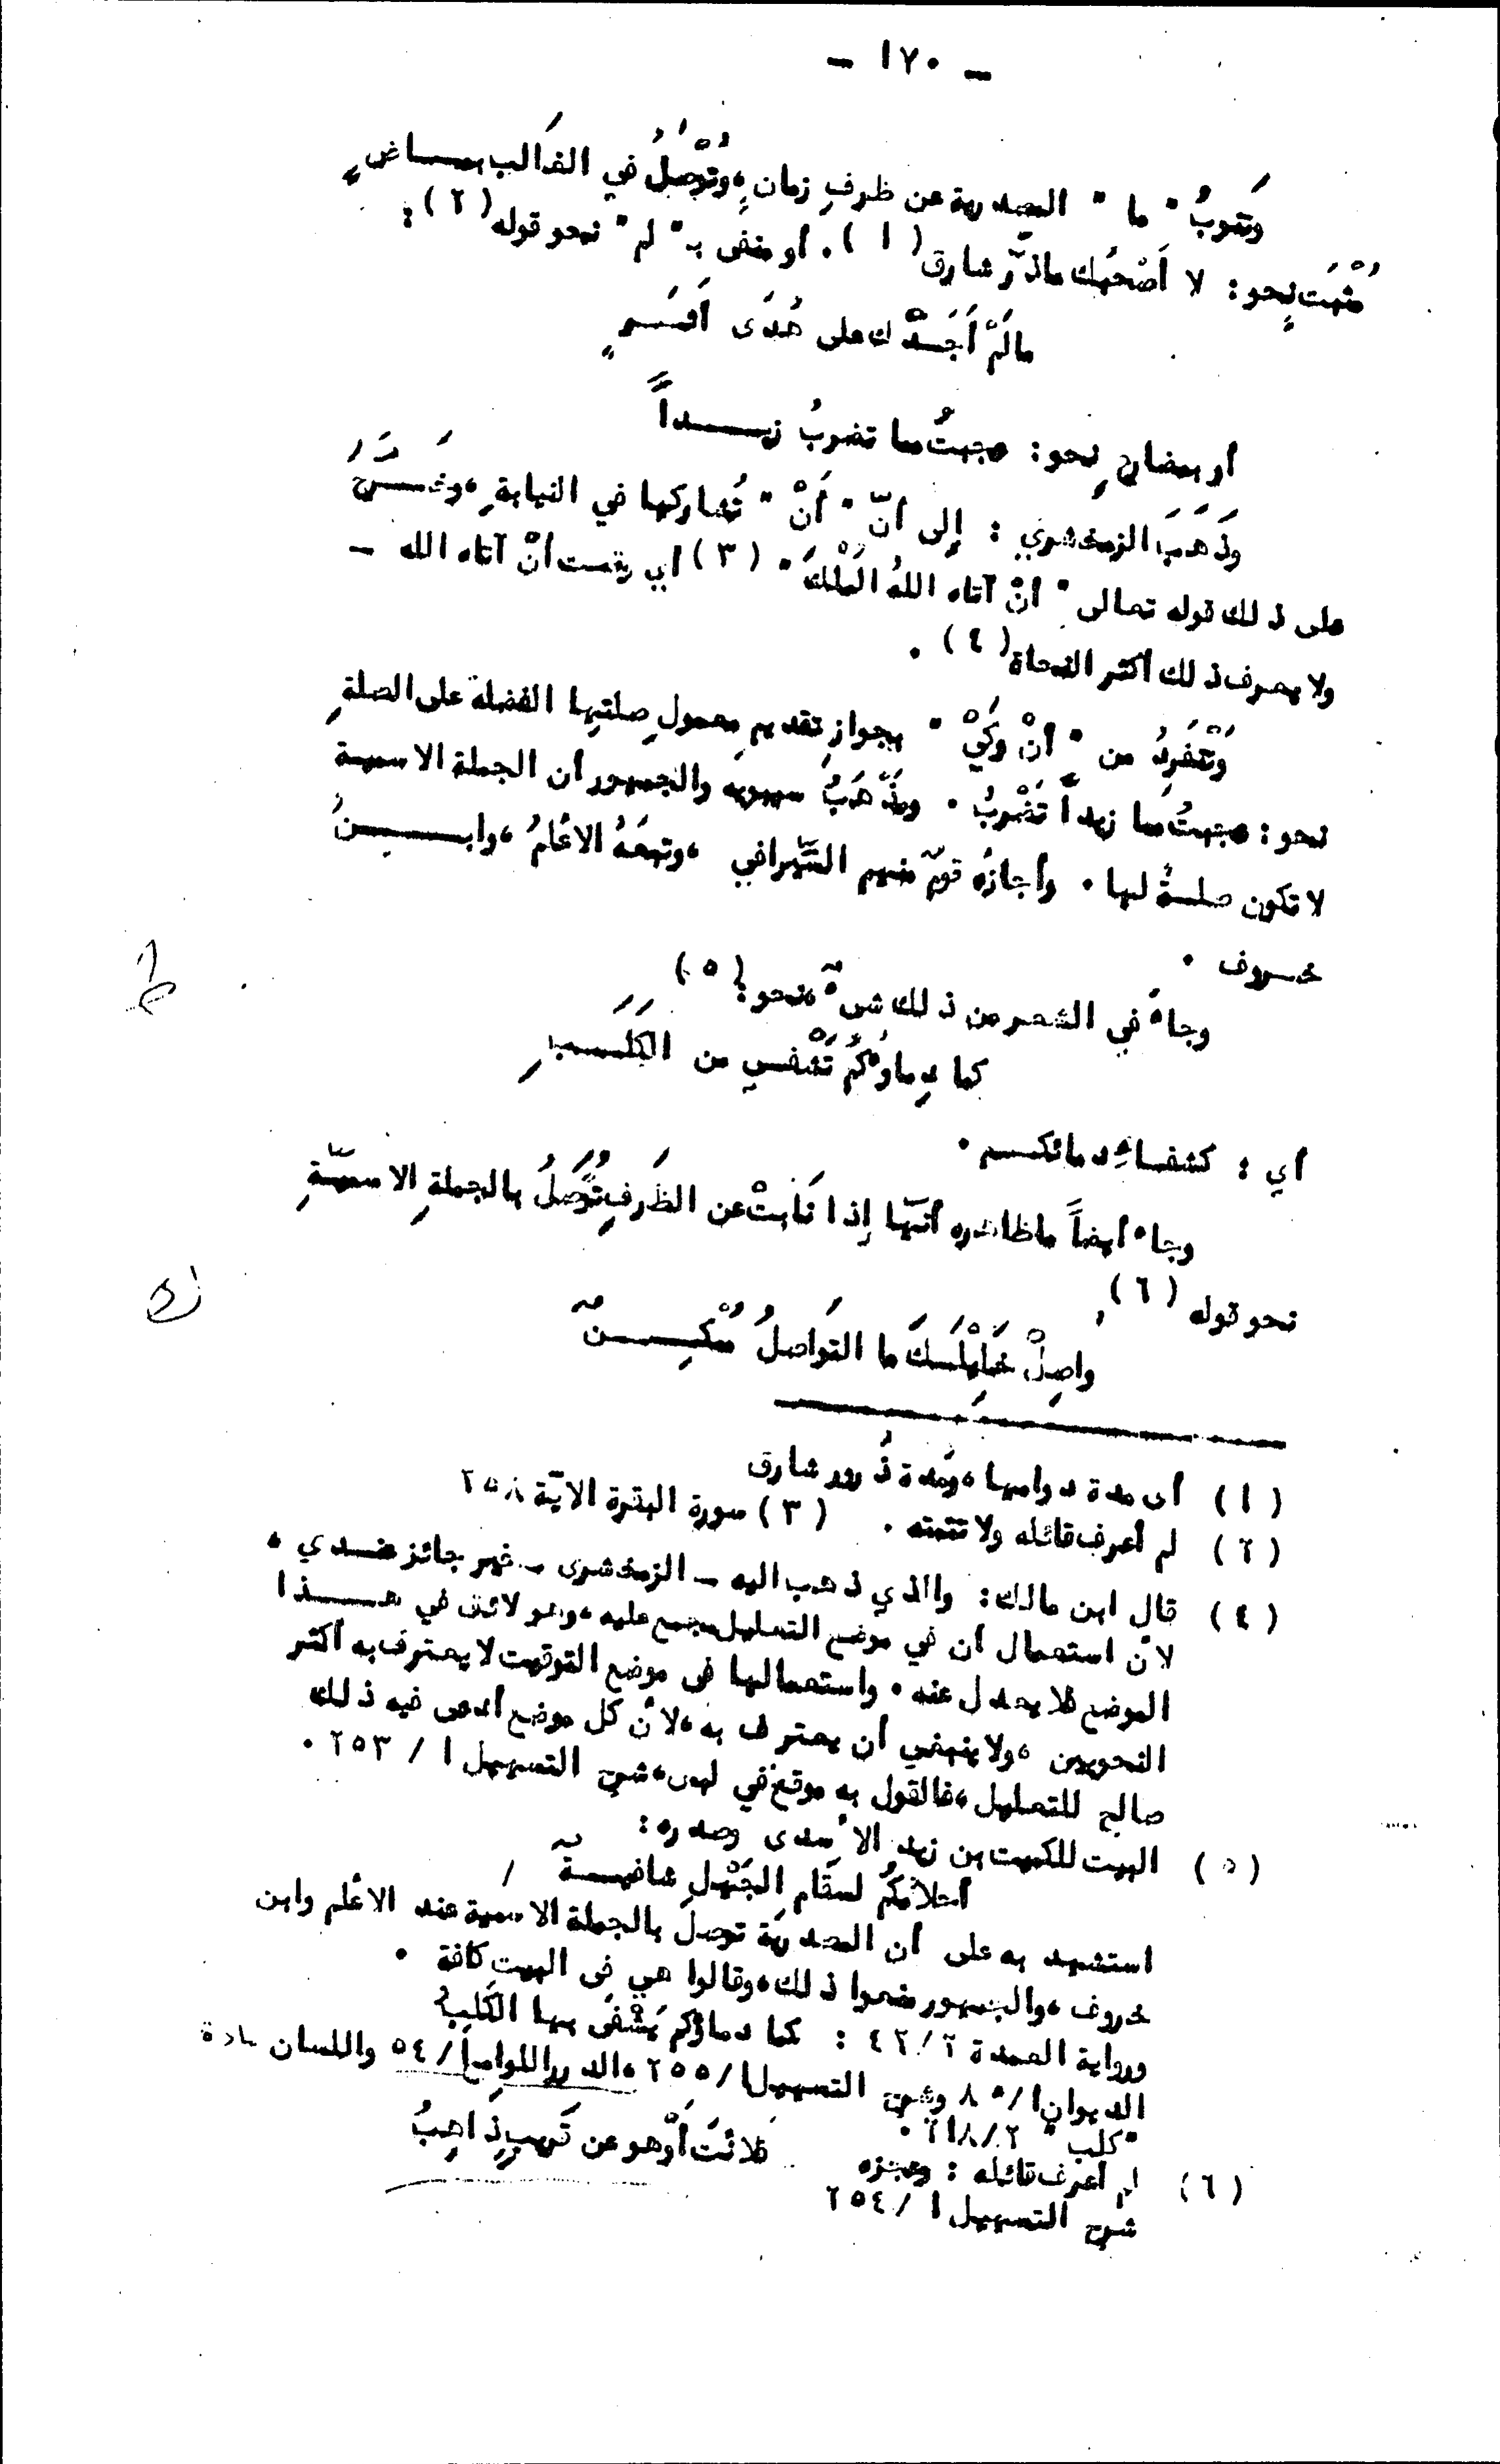 - ١٧٠ -
وَتَنوبُ " ما " المصدرية عن ظرفِ زمان، وتُوْصَلُ في الغالب بمــاضٍ
مُثْبَت نحو: لا أَصْحَبُك ماذرّ شارق (١) . أو منفى بـ " لم " نحو قوله (٢) :
مالَمْ أَجَــدْك على هُدَى أمَــمٍ
أو بمضارعٍ نحو: عجبتُ مما تضربُ زيــداً
وَذَهَبَ الزمخشري : إلى أنّ " أَنْ " تُشاركها في النيابةِ، وخَــرَّجَ
على ذلك قوله تعالى " أنْ آتاه اللهُ الْمُلْكَ " (٣) أي وقت أنْ آتاه الله -
ولا يعرف ذلك أكثر النحاة (٤) .
وَتَنْفَرِدُ من " أنْ وكَيْ " بجوازِ تقديمِ معمولِ صلتِها الفضلة على الصلةِ
نحو: عجبتُ مما زيداً تَضْربُ . ومَذْهَبُ سيبويه والجمهور أن الجملة الاسمية
لا تكون صلــةً لها . وأجازَه قومٌ منهم السِّيرافي ، وتبعَهُ الأعْلمُ ، وابــنُ
خــروف .
وجاءَ في الشعر من ذلك شىءٌ، نحو: (٥)
كما دِماؤُكُمُ تَشْفــي من الكَلَــبِ
أي : كشفــاءِ دمائكــم .
وجاء أيضاً ماظاهره أنّها إذا نَابتْ عن الظَرفِ تُوصَلُ بالجملةِ الاسميّةِ
نحو قوله (٦) .
واصِلْ خَلِيْلَــكَ ما التَواصلُ مُمْكِــنٌ
(١) أى مدة دوامها، ومُدة ذُرور شارق
(٢) لم أعرف قائله ولا تتمته . (٣) سورة البقرة الآية ٢٥٨
(٤) قال ابن مالك: والذي ذهب اليه - الزمخشرى - غير جائز عنــدي ،
لأن استعمال أن في موضع التعليل مجمع عليه، وهو لائق في هــذا
الموضع فلا يعدل عنه . واستعمالها فى موضع التوقيت لا يعترف به أكثر
النحويين ، ولا ينبغي أن يعترف به، لأن كل موضع أدعى فيه ذلك
صالح للتعليل، فالقول به موقع في لبس، شرح التسهيل ١ / ٢٥٣ .
(٥) البيت للكميت بن زيد الأسدى وصدره:
أحلامُكُم لسقَام الجَهْلِ شافيــةٌ /
استشهد به على أن المصدرية توصل بالجملة الاسمية عند الأعلم وابن
خروف ، والجمهور منعوا ذلك، وقالوا هي فى البيت كافة .
ورواية العمدة ٤٢/٢ : كما دماؤكم يَشْفَى بها الكَلِبُ
الديوان ١/ ٨٥ وشرح التسهيل ١/ ٢٥٥ ، الدرر اللوامع ١/ ٥٤ واللسان مادة
"كلب " ٢١٨/٢ .
(٦) لم أعرف قائله : وعجزه فلأنْتَ أوْ هو عن قَريبٍ ذاهِبُ
شرح التسهيل ١ /٢٥٤